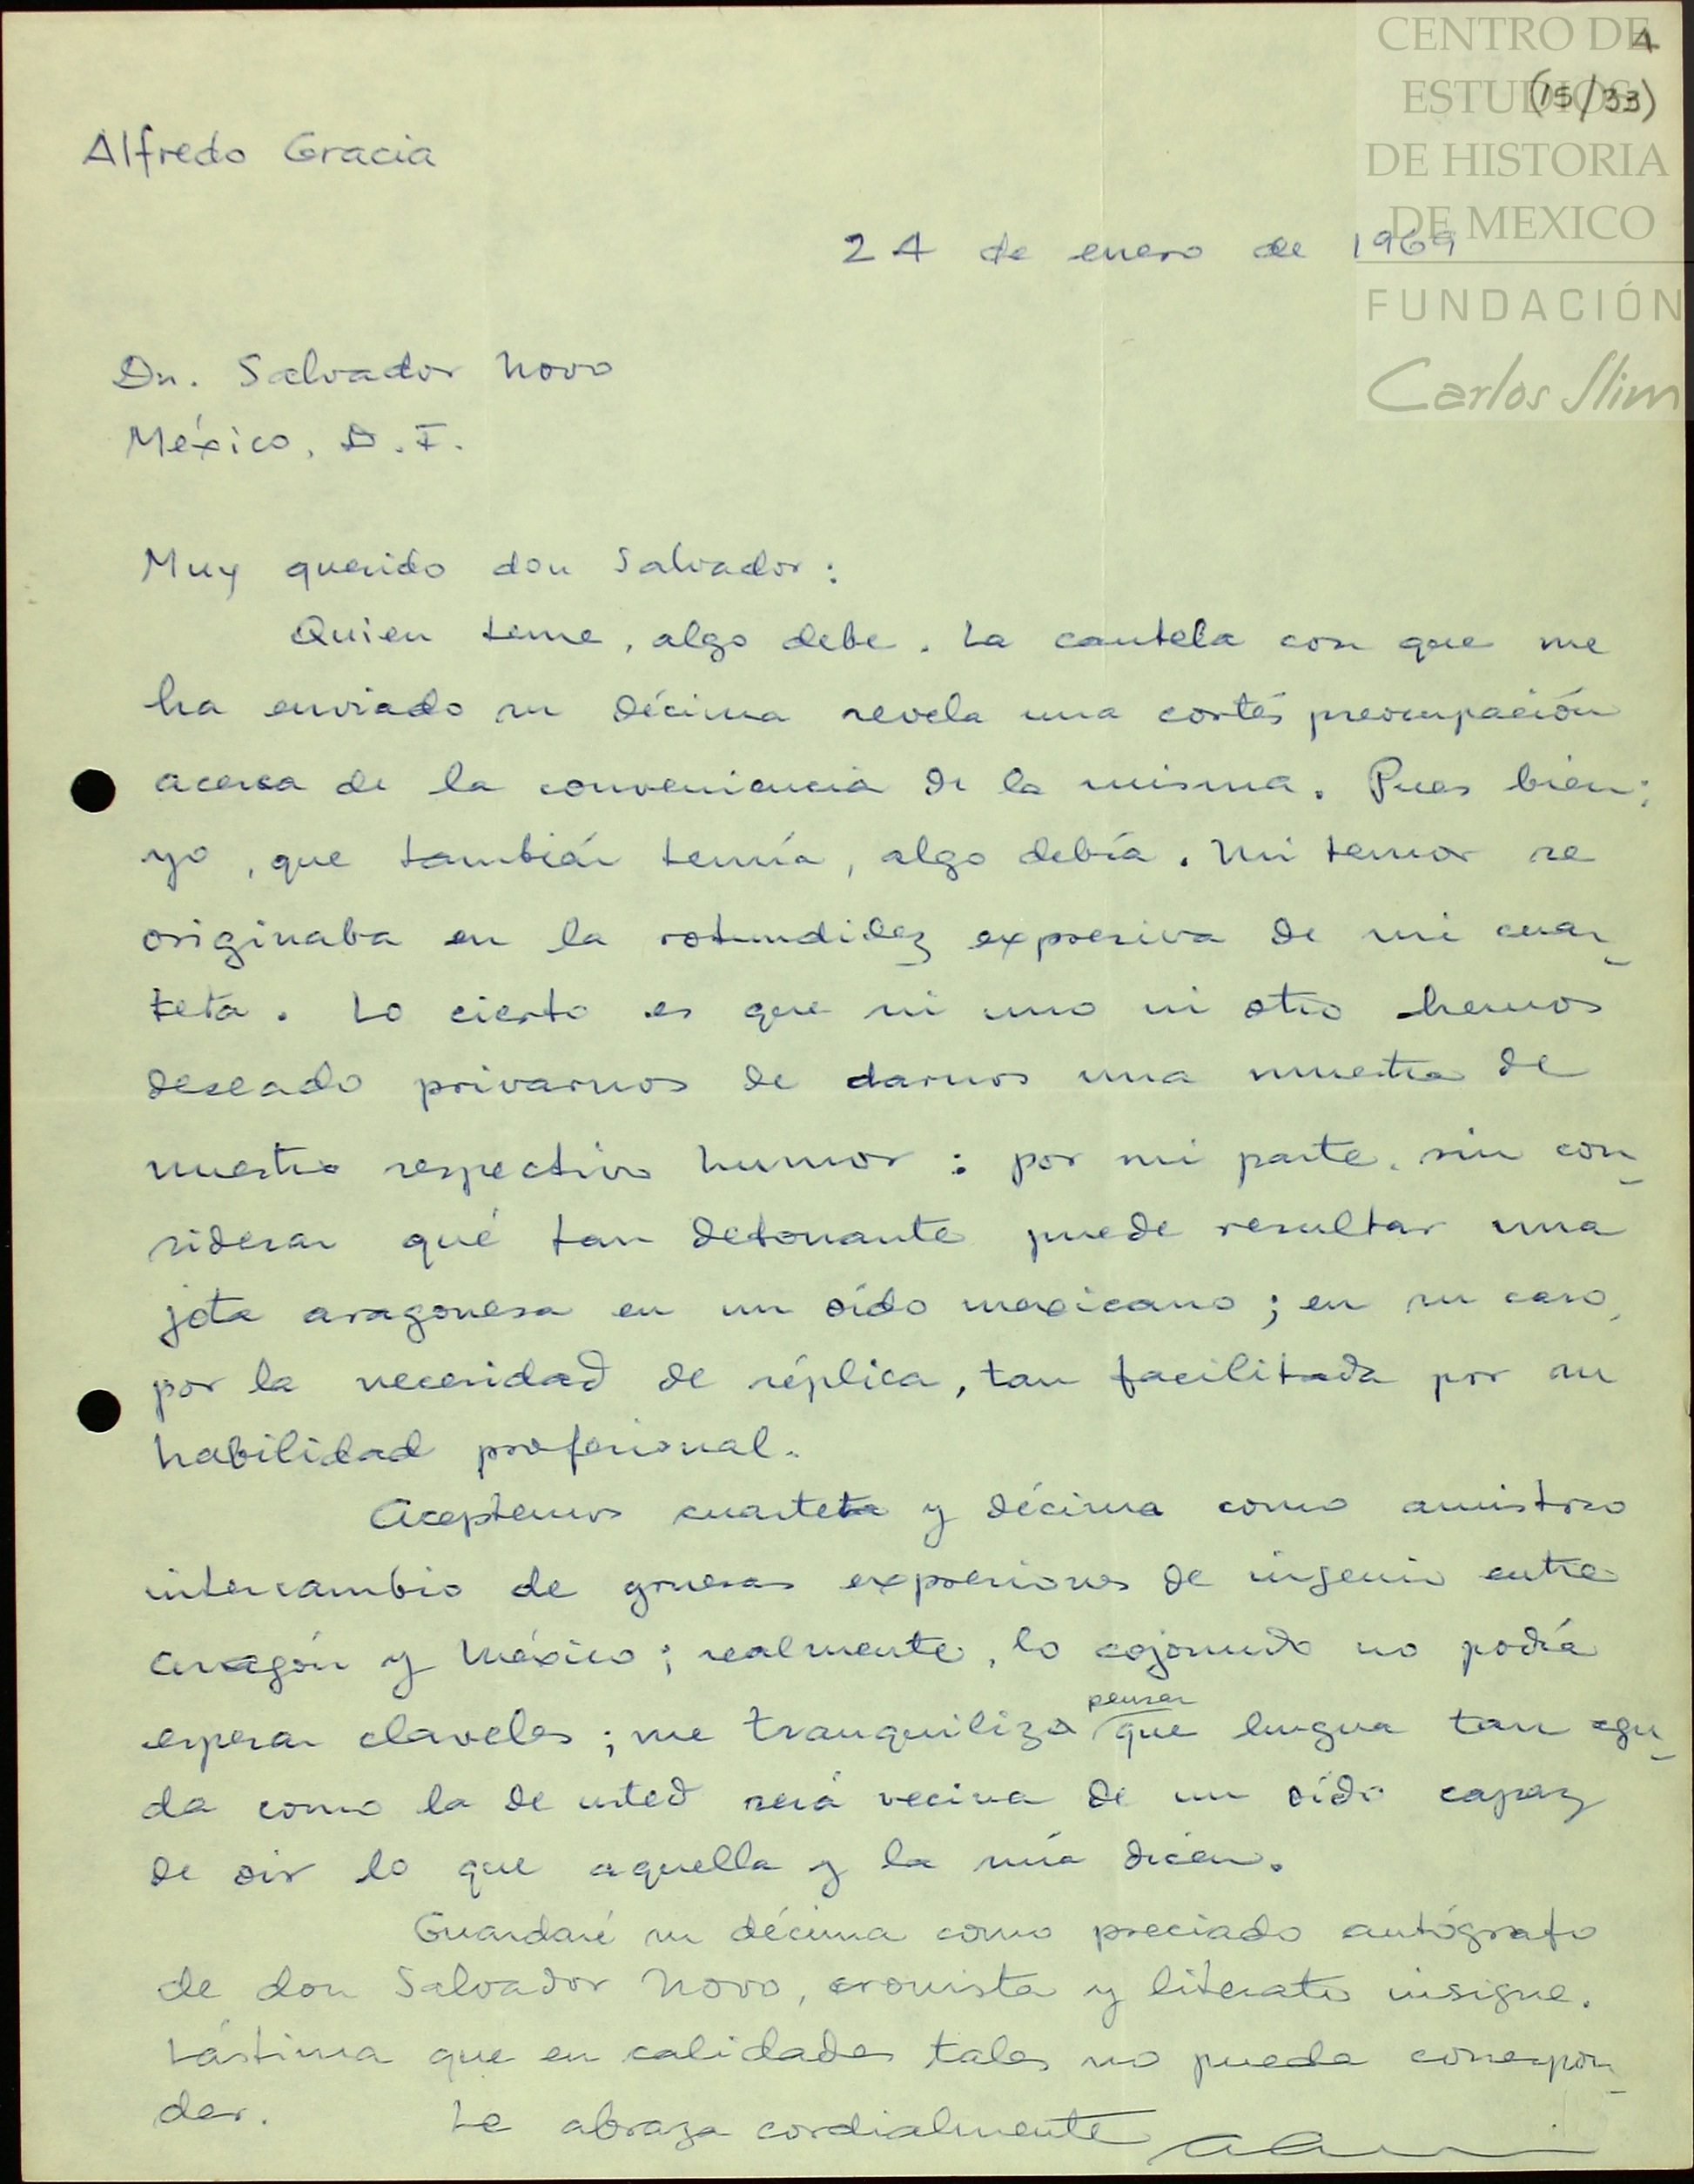 CENTRO DE
ESTUDIOS
DE HISTORIA
DE MEXICO
FUNDACIÓN
Carlos Slim
4
(15/33)
Alfredo Gracia
24 de enero de 1969
Dn. Salvador Novo
México, D.F.
Muy querido don Salvador:
Quien teme, algo debe. La cautela con que me
ha enviado su décima revela una cortés preocupación
acerca de la conveniencia de la misma. Pues bien:
yo, que también temía, algo debía. Mi temor se
originaba en la rotundidez expresiva de mi cuar-
teta. Lo cierto es que ni uno ni otro hemos
deseado privarnos de darnos una muestra de
nuestro respectivo humor: por mi parte, sin con-
siderar qué tan detonante puede resultar una
jota aragonesa en un oído mexicano; en su caso,
por la necesidad de réplica, tan facilitada por su
habilidad profesional.
Aceptemos cuarteta y décima como amistoso
intercambio de gruesas expresiones de ingenio entre
Aragón y México; realmente, lo cojonudo no podía
esperar claveles; me tranquiliza pensar que lengua tan agu-
da como la de usted será vecina de un oído capaz
de oir lo que aquella y la mía dicen.
Guardaré su décima como preciado autógrafo
de don Salvador Novo, cronista y literato insigne.
Lástima que en calidades tales no pueda correspon-
der. Le abraza cordialmente